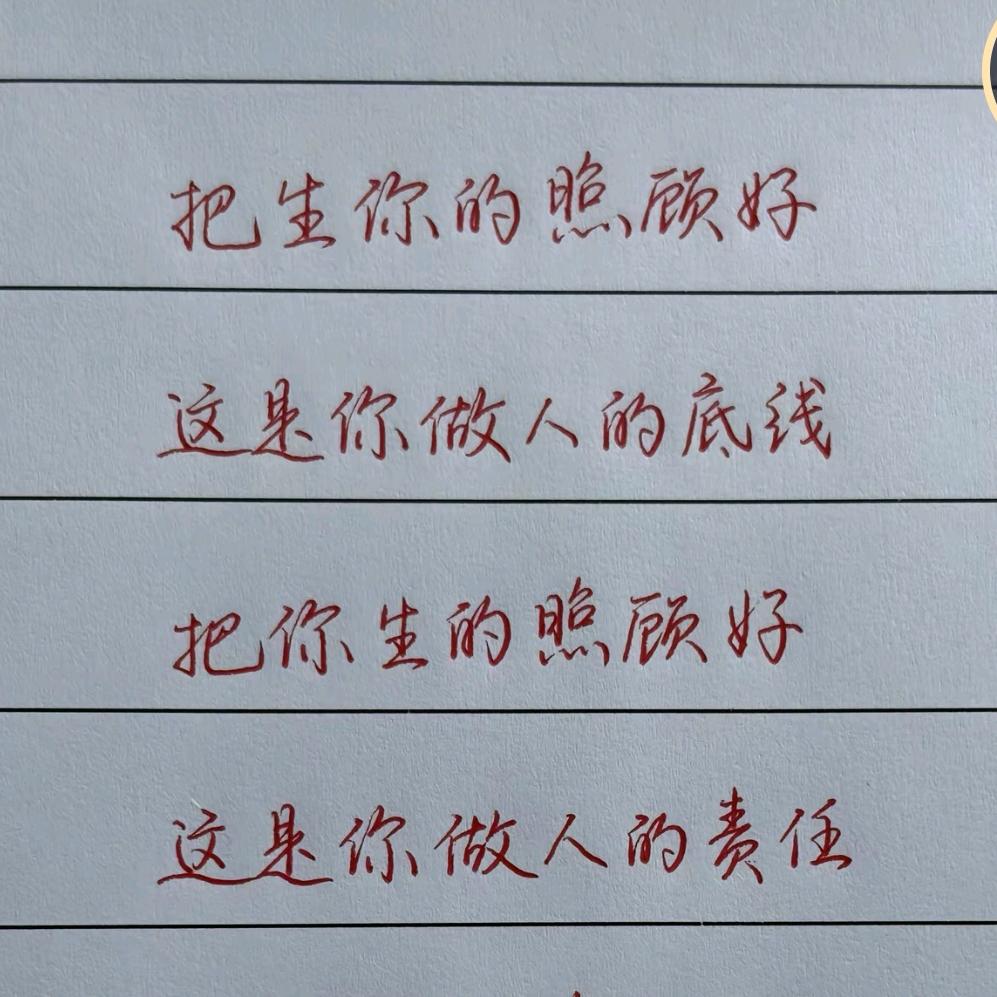 把生你的照顾好
这是你做人的底线
把你生的照顾好
这是你做人的责任